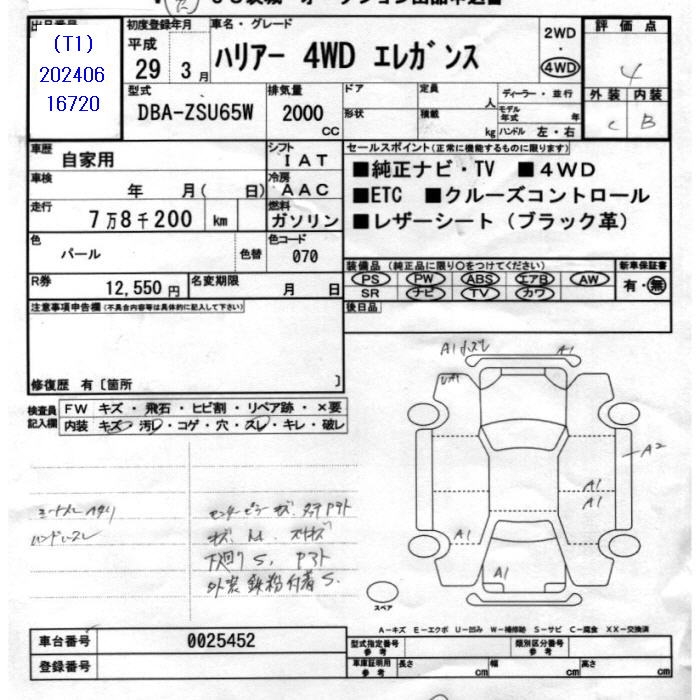 出品番号
(T1)
202406
16720
初度登録年月
平成
29 3 月
車名・グレード
ハリアー 4WD エレガンス
2WD
・
4WD
評価点
4
外装 内装
C B
型式
DBA-ZSU65W
排気量
2000
CC
ドア
形状
定員
人
積載
kg
ディーラー・並行
モデル年式 年
ハンドル 左・右
車歴
自家用
シフト
IAT
車検
年 月( 日)
冷房
AAC
走行
7万8千200 km
燃料
ガソリン
色
パール
色替
色コード
070
R券
12,550 円
名変期限
月 日
セールスポイント(正常に機能するものに限ります)
■純正ナビ・TV ■4WD
■ETC ■クルーズコントロール
■レザーシート(ブラック革)
装備品 (純正品に限り○をつけてください)
PS PW ABS エアB AW
SR ナビ TV カワ
新車保証書
有・無
後日品
注意事項申告欄(不具合内容等は具体的に記入して下さい)
修復歴 有〔箇所 〕
検査員
記入欄
FW キズ・飛石・ヒビ割・リペア跡・×要
内装 キズ・汚レ・コゲ・穴・スレ・キレ・破レ
A1
A1
A2
A1
A1
A1
A1
スペア
A-キズ E-エクボ U-凹み W-補修跡 S-サビ C-腐食 XX-交換済
車台番号
0025452
登録番号
型式指定番号
参考
類別区分番号
参考
車庫証明用
参考
長さ cm
幅 cm
高さ cm